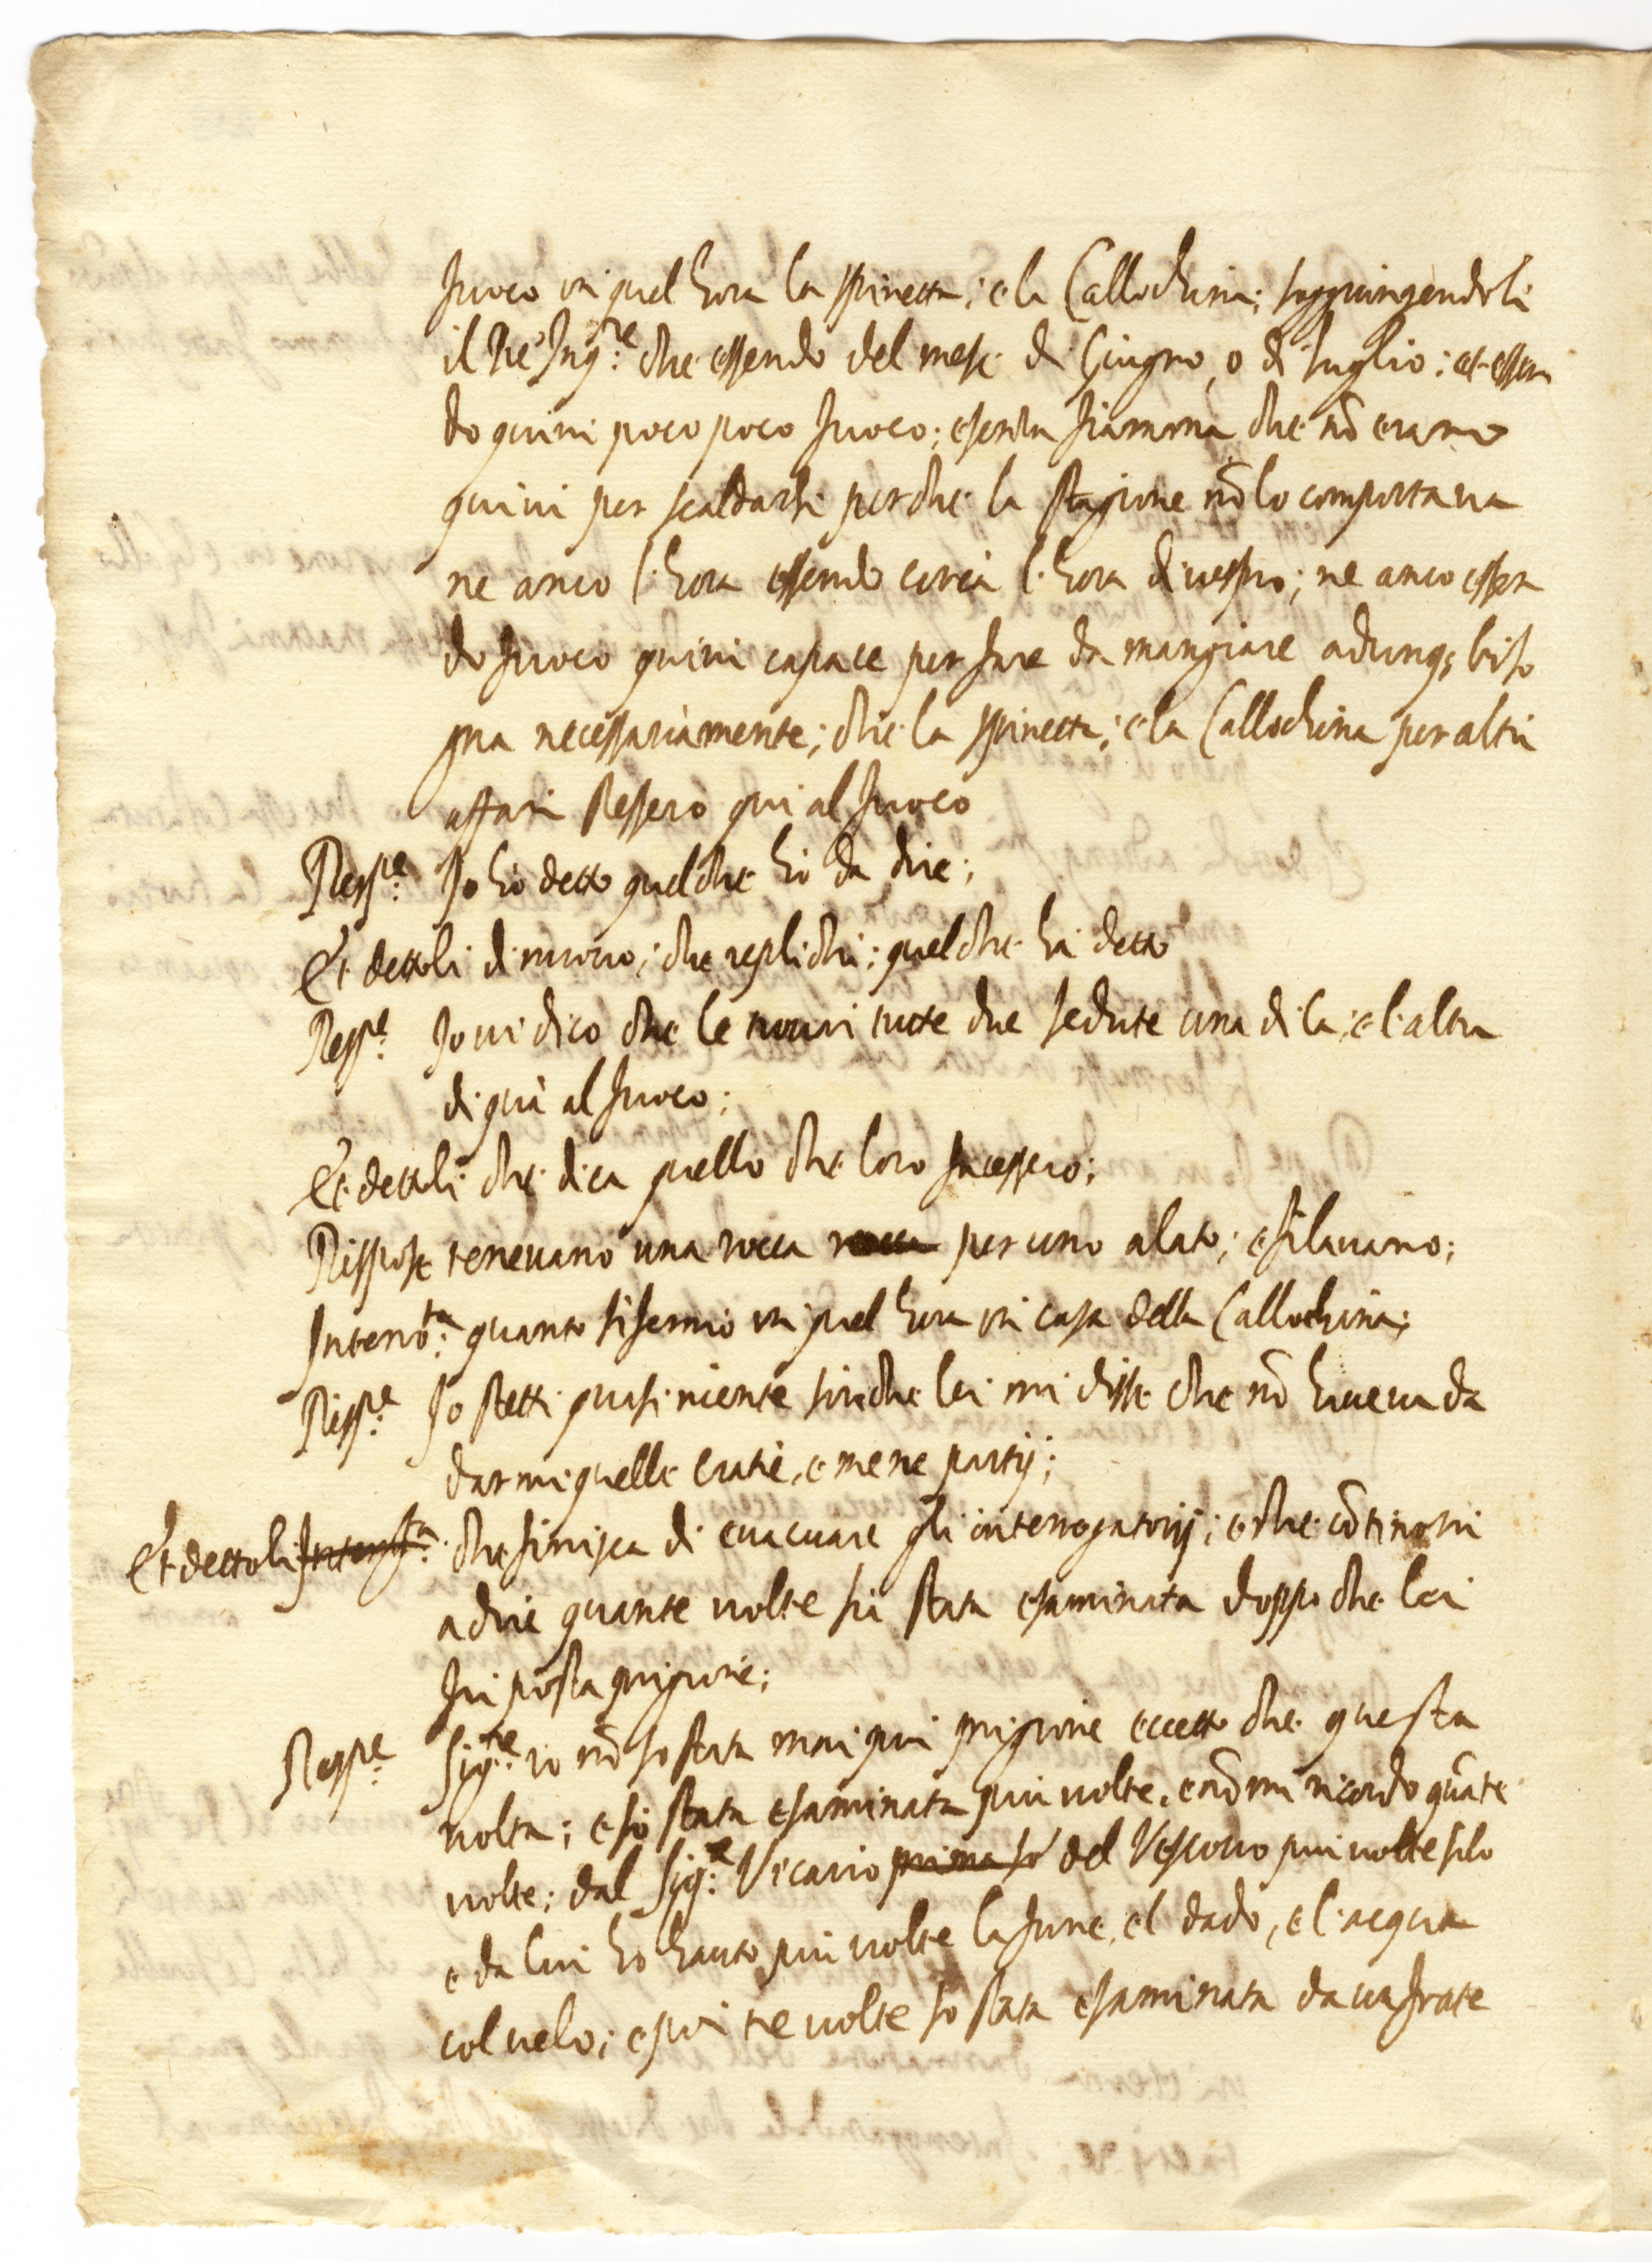 fuoco in quel hora la spinetta; e la Callochina; soggiungendoli
il Re: Inq.re che essendo del mese di Giugno, o di luglio; et essen
do quiui poco poco fuoco; e senza fiamma che nō erano
quiui per scaldarsi perche la stagione nō lo comportaua
ne anco l'hora essendo circa l'hora di uespro; ne anco essen
do fuoco quiui capace per fare da mangiare adunq; biso
gna necessariamente; che la spinetta; e la Callochina per altri
affari stessero qui al fuoco
Resp.e Io hò detto quel che hò da dire;
Et dettoli di nuouo; che replichi; quel che hà detto
Resp.e Io ui dico che le trouai tutte due sedute una di la; e l'altra
di quà al fuoco;
Et dettoli che dica quello che loro facessero;
Rispose teneuano una rocca rocca per uno alato; e filauano;
Interro.ta quanto si fermò in quel hora in casa della Callochina;
Risp.e Io stetti quasi niente sin che lei mi disse che nō haueua da
darmi quelle cratie, e me ne partij;
Et dettoli Interro.ta che finisca di euacuare gli interrogatorij; e che cōtinoui
a dire quante uolte sia stata esaminata doppo che lei
fu posta prigione;
Resp.e Sig.re io nō so stata mai più prigione eccetto che questa
uolta; e so stata esaminata più uolte, e nō mi ricordo quāte
uolte; dal Sig.re Vicario prima so del Vescouo più uolte solo
e da lui ho hauto più uolte la fune, el dado, e l'acqua
col uelo; e poi tre uolte so stata esaminata da un frate